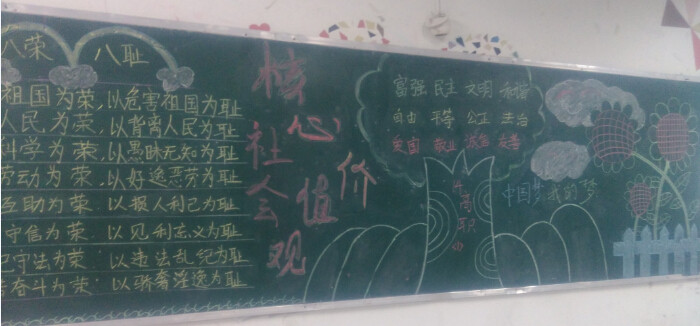 八荣 八耻
祖国为荣,以危害祖国为耻
人民为荣,以背离人民为耻
科学为荣,以愚昧无知为耻
劳动为荣,以好逸恶劳为耻
互助为荣、以损人利己为耻
守信为荣、以见利忘义为耻
守法为荣、以违法乱纪为耻
奋斗为荣、以骄奢淫逸为耻
核心
社会
价值观
富强 民主 文明 和谐
自由 平等 公正 法治
爱国 敬业 诚信 友善
高职
中国梦 我的梦